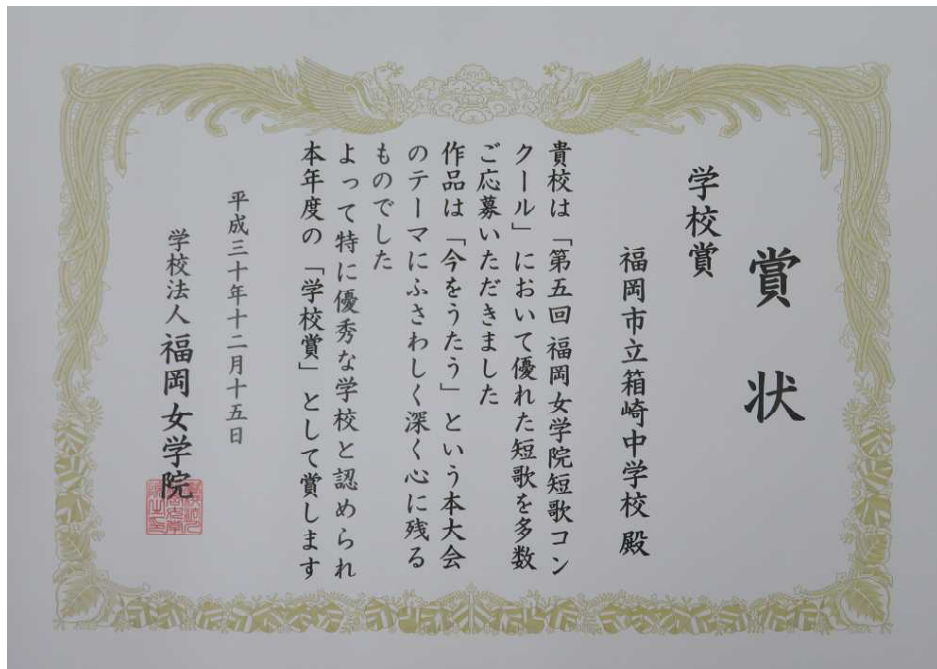 賞状
学校賞
福岡市立箱崎中学校 殿
貴校は「第五回 福岡女学院短歌コン
クール」において優れた短歌を多数
ご応募いただきました
作品は「今をうたう」という本大会
のテーマにふさわしく深く心に残る
ものでした
よって特に優秀な学校と認められ
本年度の「学校賞」として賞します
平成三十年十二月十五日
学校法人 福岡女学院